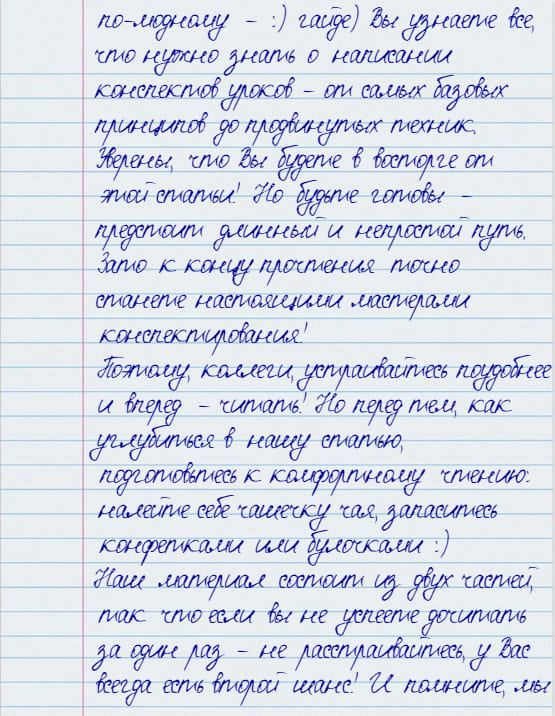 по-модному - :) гайде) Вы узнаете все,
что нужно знать о написании
конспектов уроков - от самых базовых
принципов до продвинутых техник.
Уверены, что Вы будете в восторге от
этой статьи! Но будьте готовы -
предстоит длинный и непростой путь.
Зато к концу прочтения точно
станете настоящими мастерами
конспектирования!
Поэтому, коллеги, устраивайтесь поудобнее
и вперед - читать! Но перед тем, как
углубиться в нашу статью,
подготовьтесь к комфортному чтению:
налейте себе чашечку чая, запаситесь
конфетками или булочками :)
Наш материал состоит из двух частей,
так что если вы не успеете дочитать
за один раз - не расстраивайтесь, у Вас
всегда есть второй шанс! И помните, мы